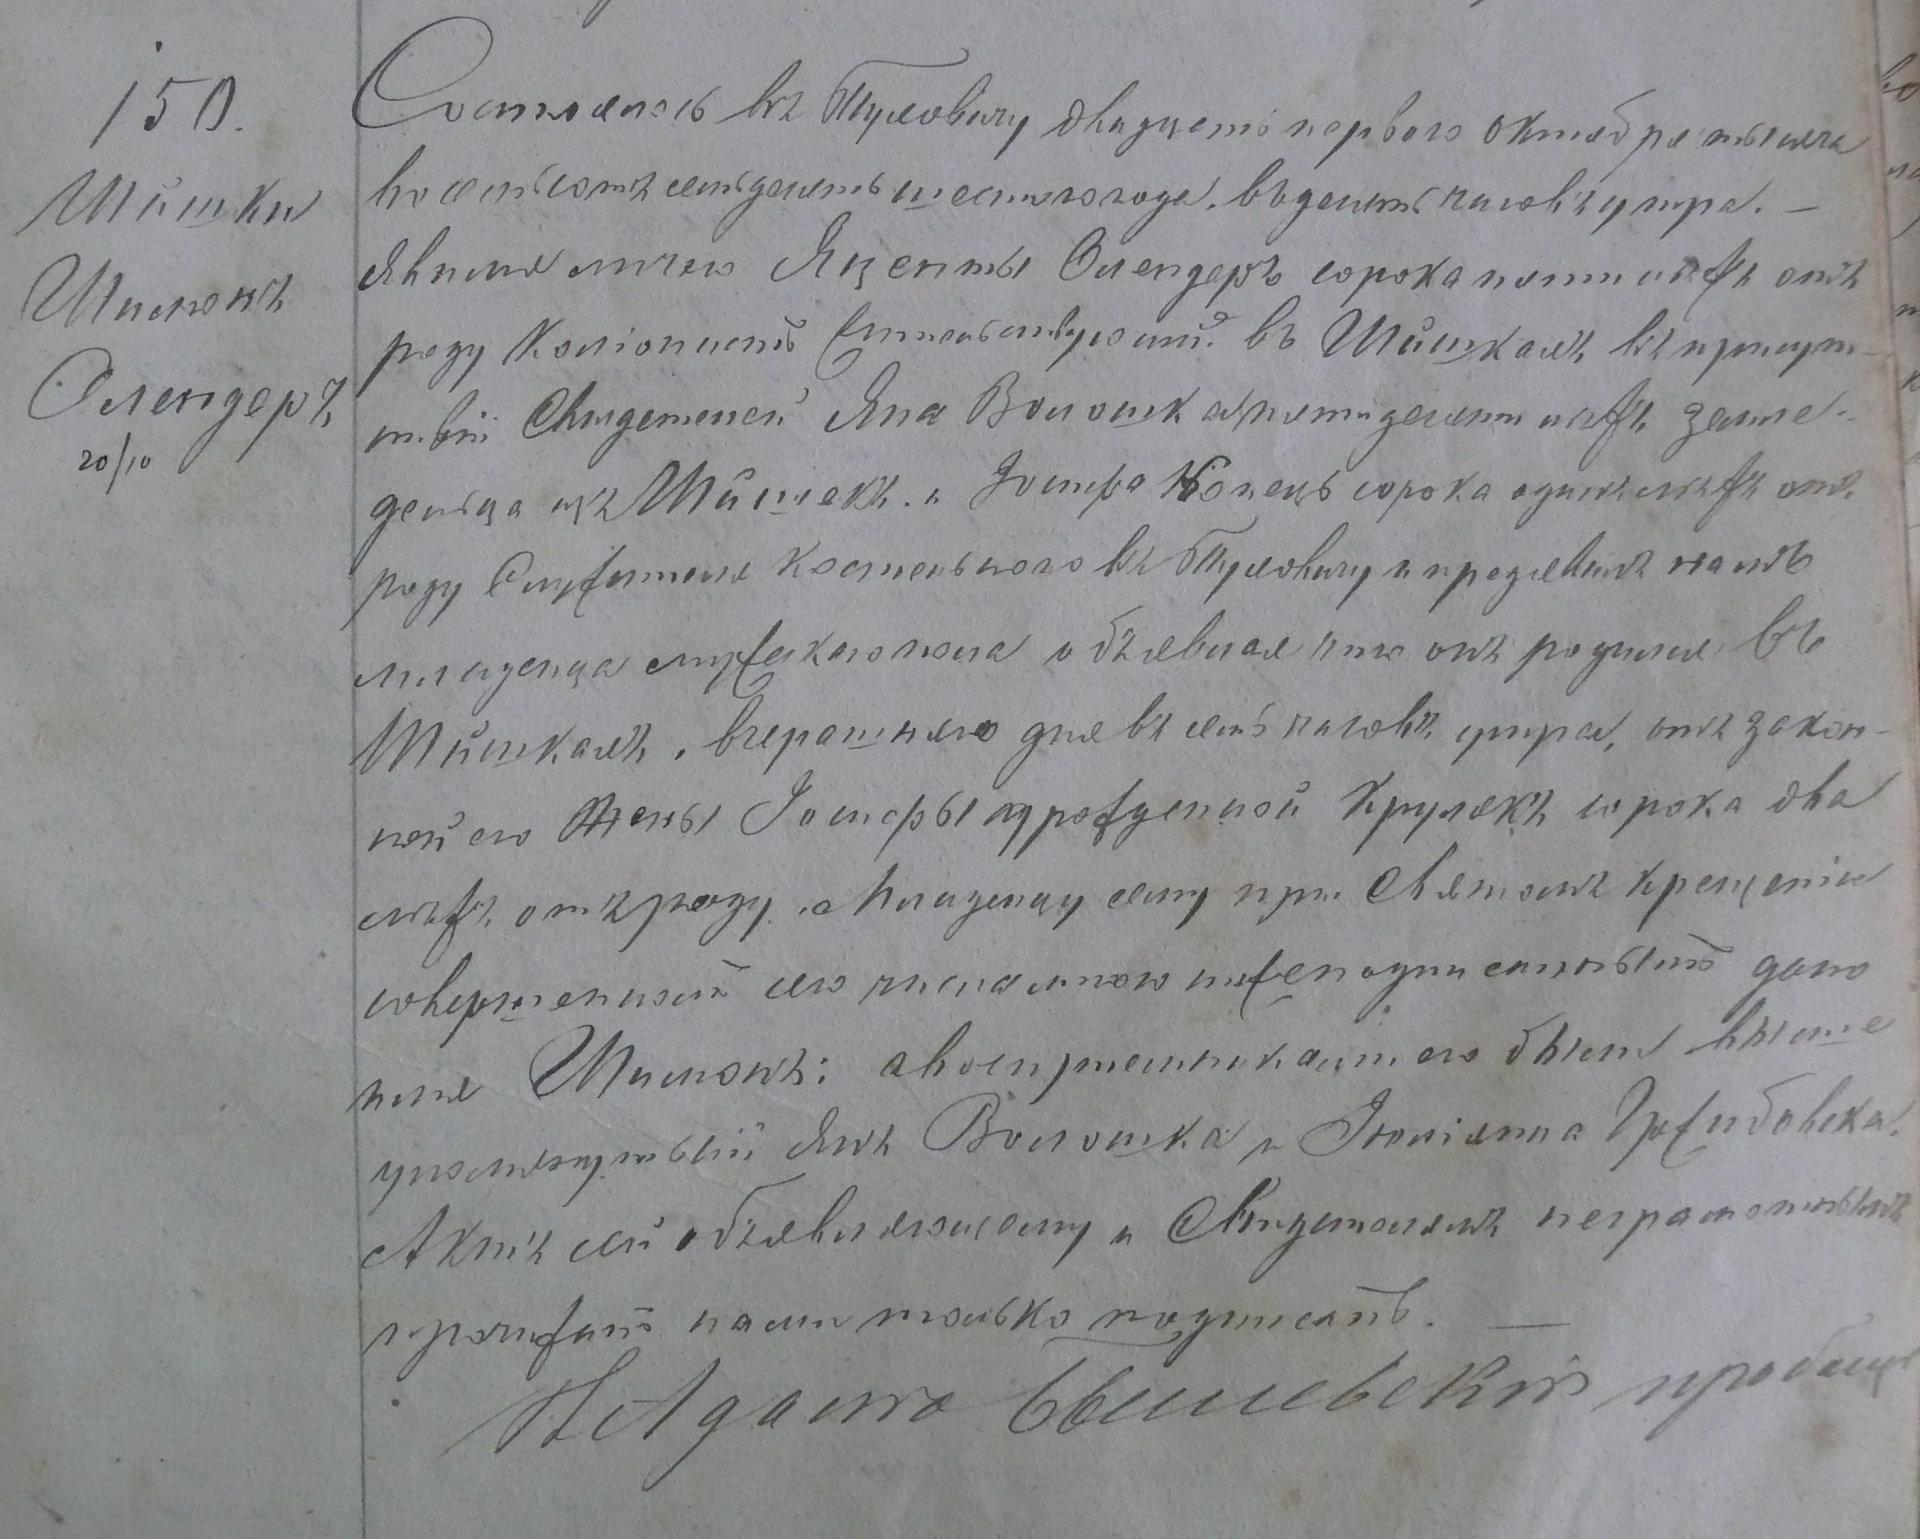 150.
Шишки
Шимонъ
Олендеръ
20/10
Состоялось въ Туловицу двадцать перваго Октября тысяча
восемьсотъ семьдесять шестаго года, въ десять часовъ утра. —
Явился лично Яценты Олендеръ сорока пяти лѣтъ отъ
роду Колонистъ жительствующій въ Шишкахъ въ присут-
ствіи Свидетелей Яна Волошка пятидесяти лѣтъ земле-
дельца изъ Шишекъ. и Іосифа Копець сорока одинъ лѣтъ отъ
роду Служителя костельнаго въ Туловицу и предявилъ намъ
младенца мужскаго пола объявляя что онъ родился въ
Шишкахъ, вчерашняго дня въ семь часовъ утра, отъ закон-
ной его Жены Іосифы урожденной Крулякъ сорока два
лѣтъ отъ роду. Младенцу сему при Святомъ крещеніи
совершенномъ сего числа мною нижеподписаннымъ дано
имя Шимонъ; а воспріемниками его были выше
упомянутый Янъ Волошка и Юліянна Гржибовска.
Актъ сей объявляющему и Свидетелямъ неграмотнымъ
прочитанъ нами только подписанъ. —
К Адамъ пробощъ